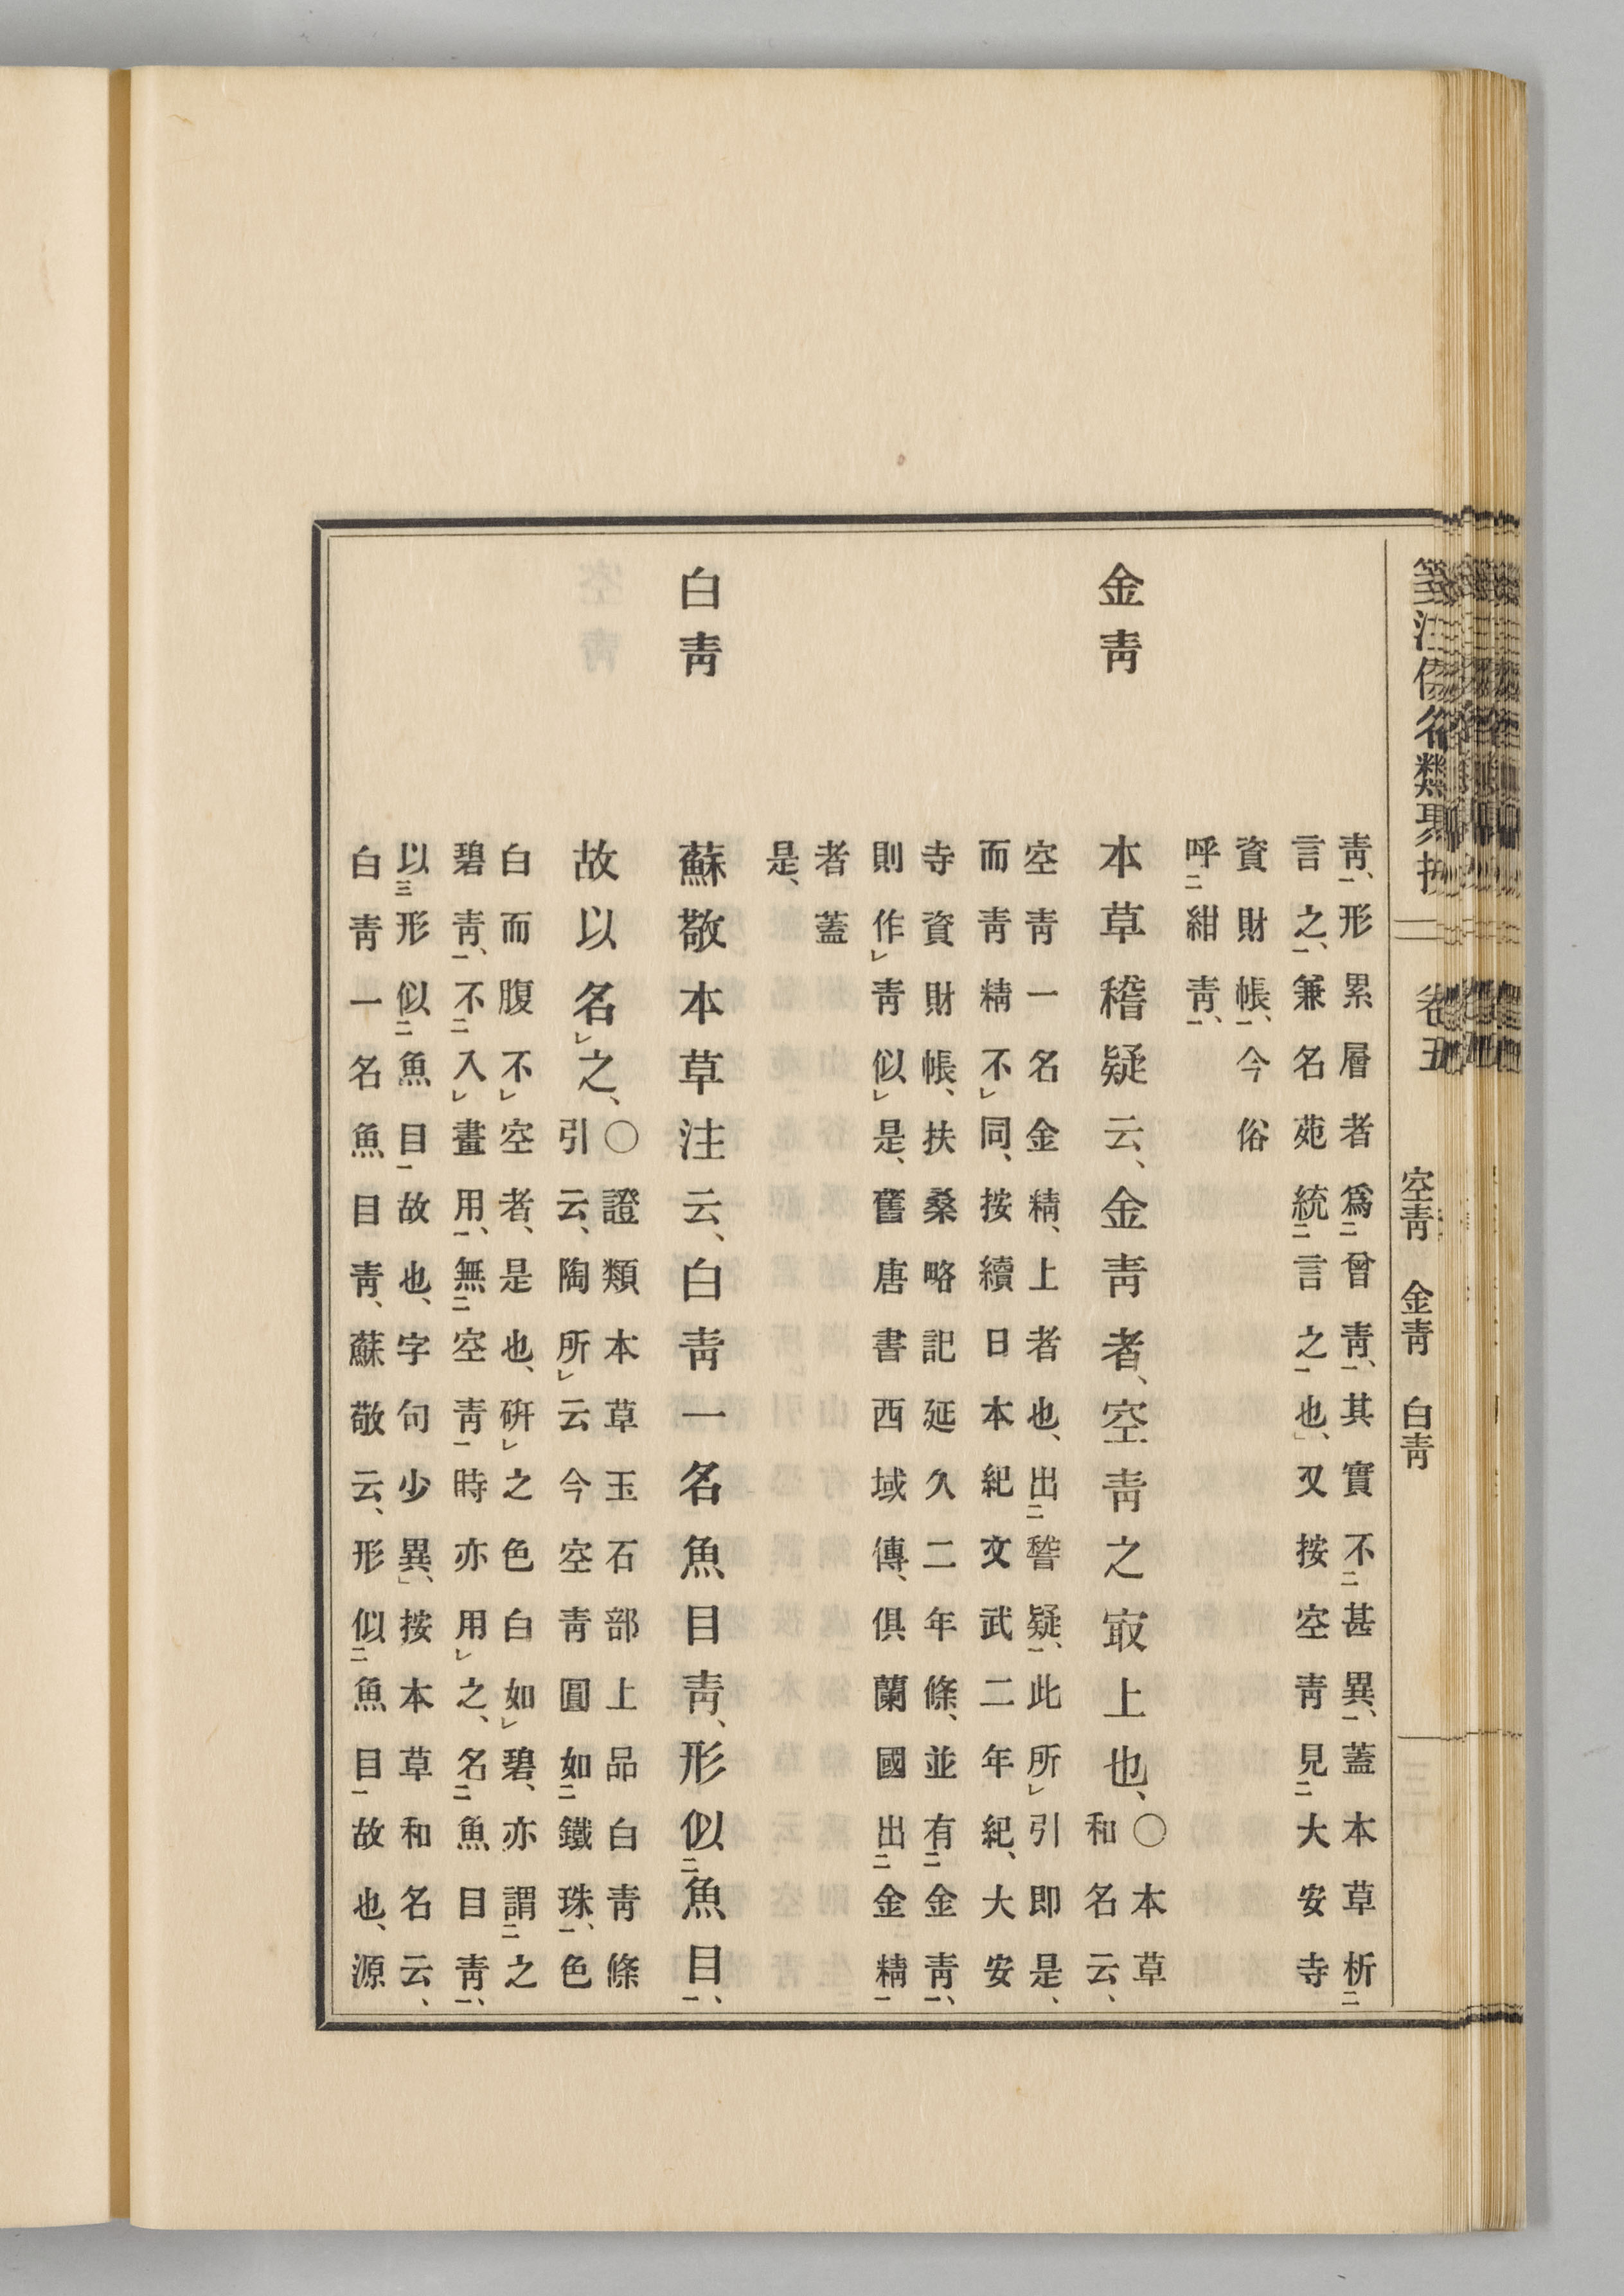 箋注倭名類聚抄 卷五 空靑 金靑 白靑
靑㆒、形累層者爲㆓曾靑㆒、其實不㆓甚異㆒、蓋本草析㆓
言之㆒、兼名苑統㆓言之㆒也、」又按空靑見㆓大安寺
資財帳㆒、今俗
呼㆓紺靑㆒、
金靑
本草稽疑云、金靑者、空靑之㝡上也、
〇本草
和名云、
空靑一名金精、上者也、出㆓䅲疑㆒、此所㆑引即是、
而靑精不㆑同、按續日本紀文武二年紀、大安
寺資財帳、扶桑略記延久二年條、並有㆓金靑㆒、
則作㆑靑似㆑是、舊唐書西域傳、俱蘭國出㆓金精㆒
者蓋
是、
白靑
蘇敬本草注云、白靑一名魚目靑、形似㆓魚目㆒、
故以名㆑之、
〇證類本草玉石部上品白靑條
引云、陶所㆑云今空靑圓如㆓鐵珠㆒、色
白而腹不㆑空者、是也、硏㆑之色白如㆑碧、亦謂㆓之
碧靑㆒、不㆓入㆑畫用㆒、無㆓空靑㆒時亦用㆑之、名㆓魚目靑㆒、
以㆔形似㆓魚目㆒故也、字句少異、」按本草和名云、
白靑一名魚目靑、蘇敬云、形似㆓魚目㆒故也、源